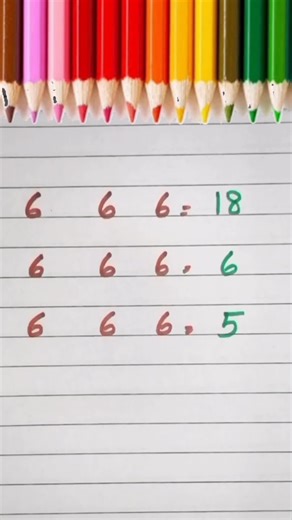 6 6 6 = 18
6 6 6 = 6
6 6 6 = 5